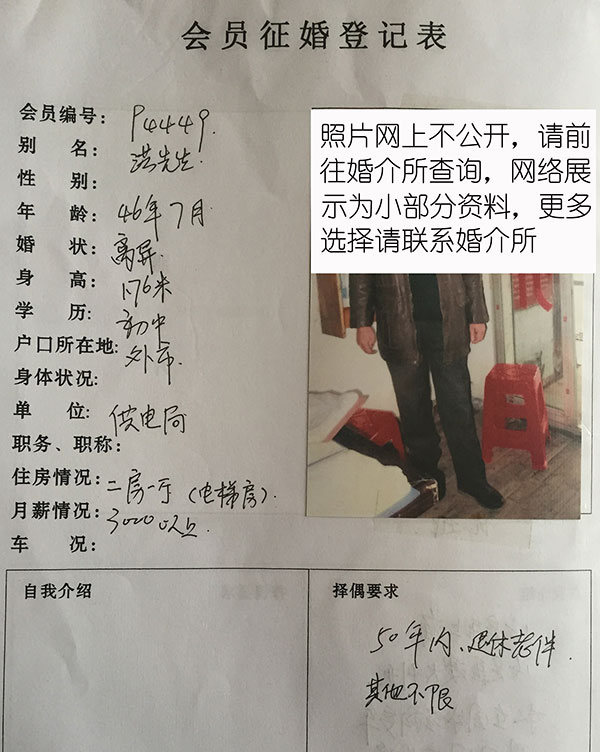 会员征婚登记表
会员编号：P4449.
别 名：洪先生.
性 别：
年 龄：46年7月
婚 状：离异.
身 高：1.76米
学 历：初中
户口所在地：外市.
身体状况：
单 位：供电局
职务、职称：
住房情况：二房一厅（电梯房）.
月薪情况：3000以上
车 况：
照片网上不公开，请前
往婚介所查询，网络展
示为小部分资料，更多
选择请联系婚介所
自我介绍
择偶要求
50年内、退休
其他不限